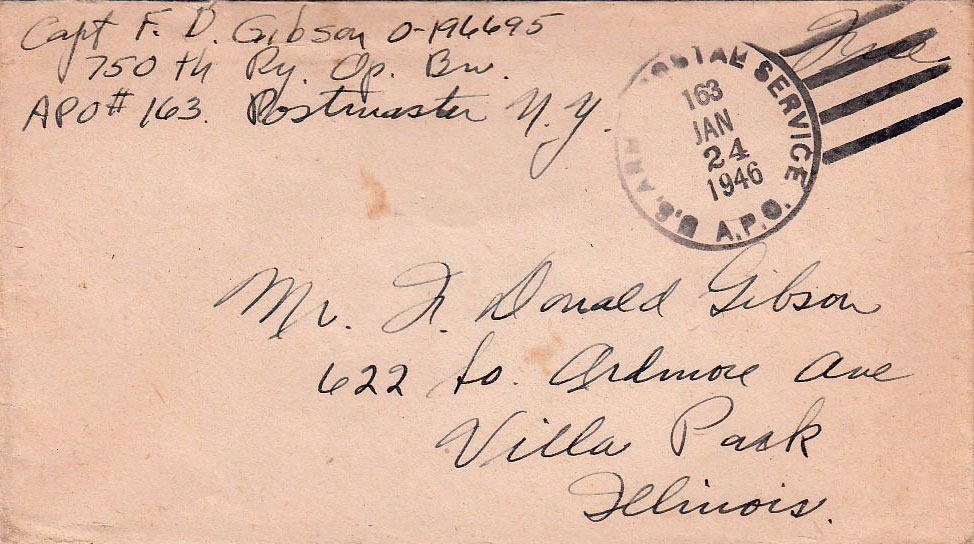 Capt F. D. Gibson O-196695
750th Ry. Op. Bn.
APO# 163. Postmaster N.Y.
Free
U.S. ARMY POSTAL SERVICE
A.P.O.
163
JAN
24
1946
Mr. F. Donald Gibson
622 So. Ardmore Ave
Villa Park
Illinois.